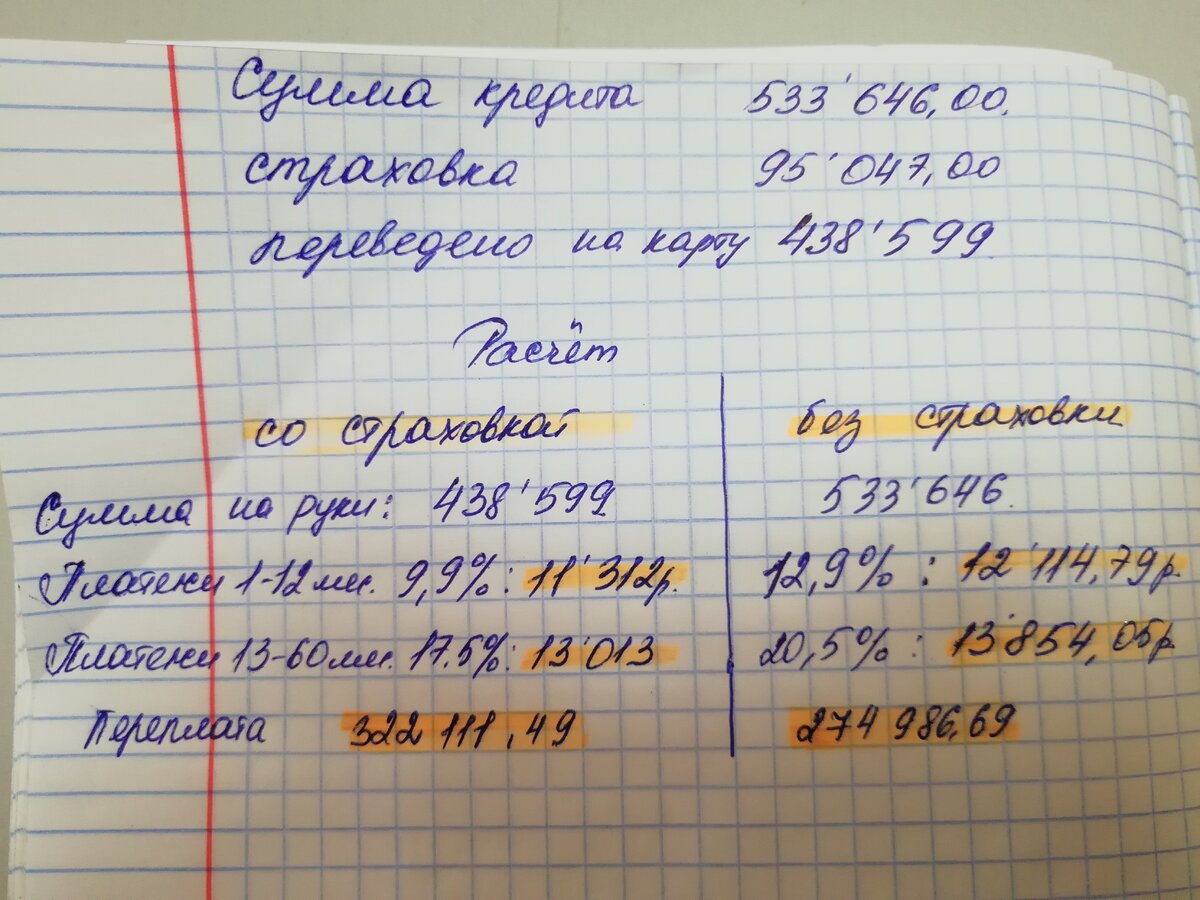 Сумма кредита 533'646,00.
страховка 95'047,00
переведено на карту 438'599.
Расчёт
со страховкой без страховки
Сумма на руки: 438'599 533'646.
Платежи 1-12 мес. 9,9%: 11'312р. 12,9% : 12'114,79р.
Платежи 13-60 мес. 17.5%: 13'013 20,5% : 13'854,05р
Переплата 322 111,49 274 986,69